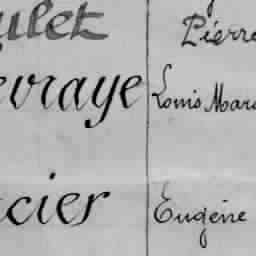 ulet Pierre
evraye Louis Marc
cier Eugène